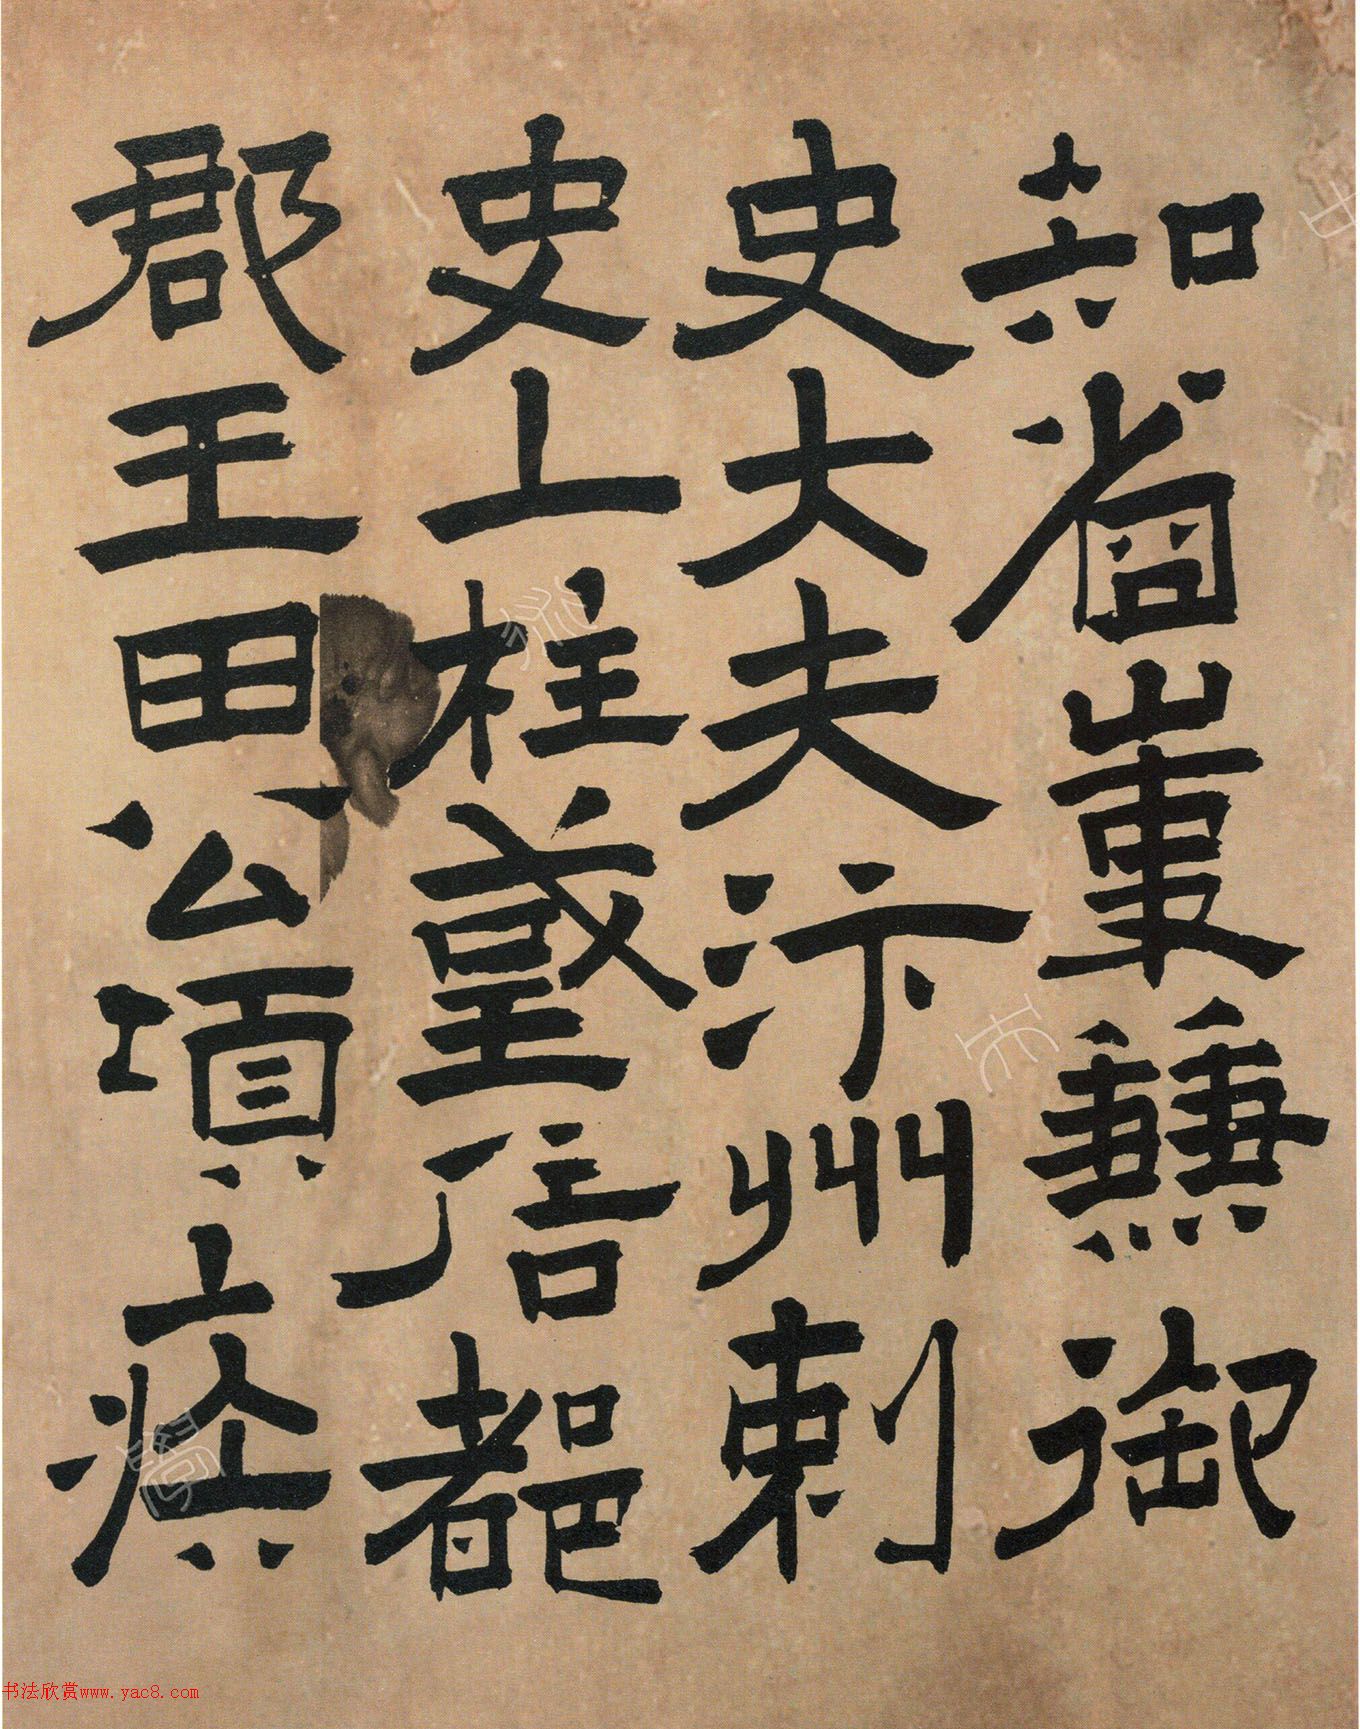 知省事兼御
史大夫汴州刺
史上柱國信都
郡王田公頃疾
书法欣赏www.yac8.com